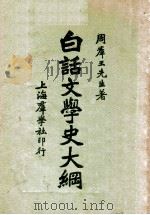 周群玉先生著
白話文學史大綱
上海羣學社印行